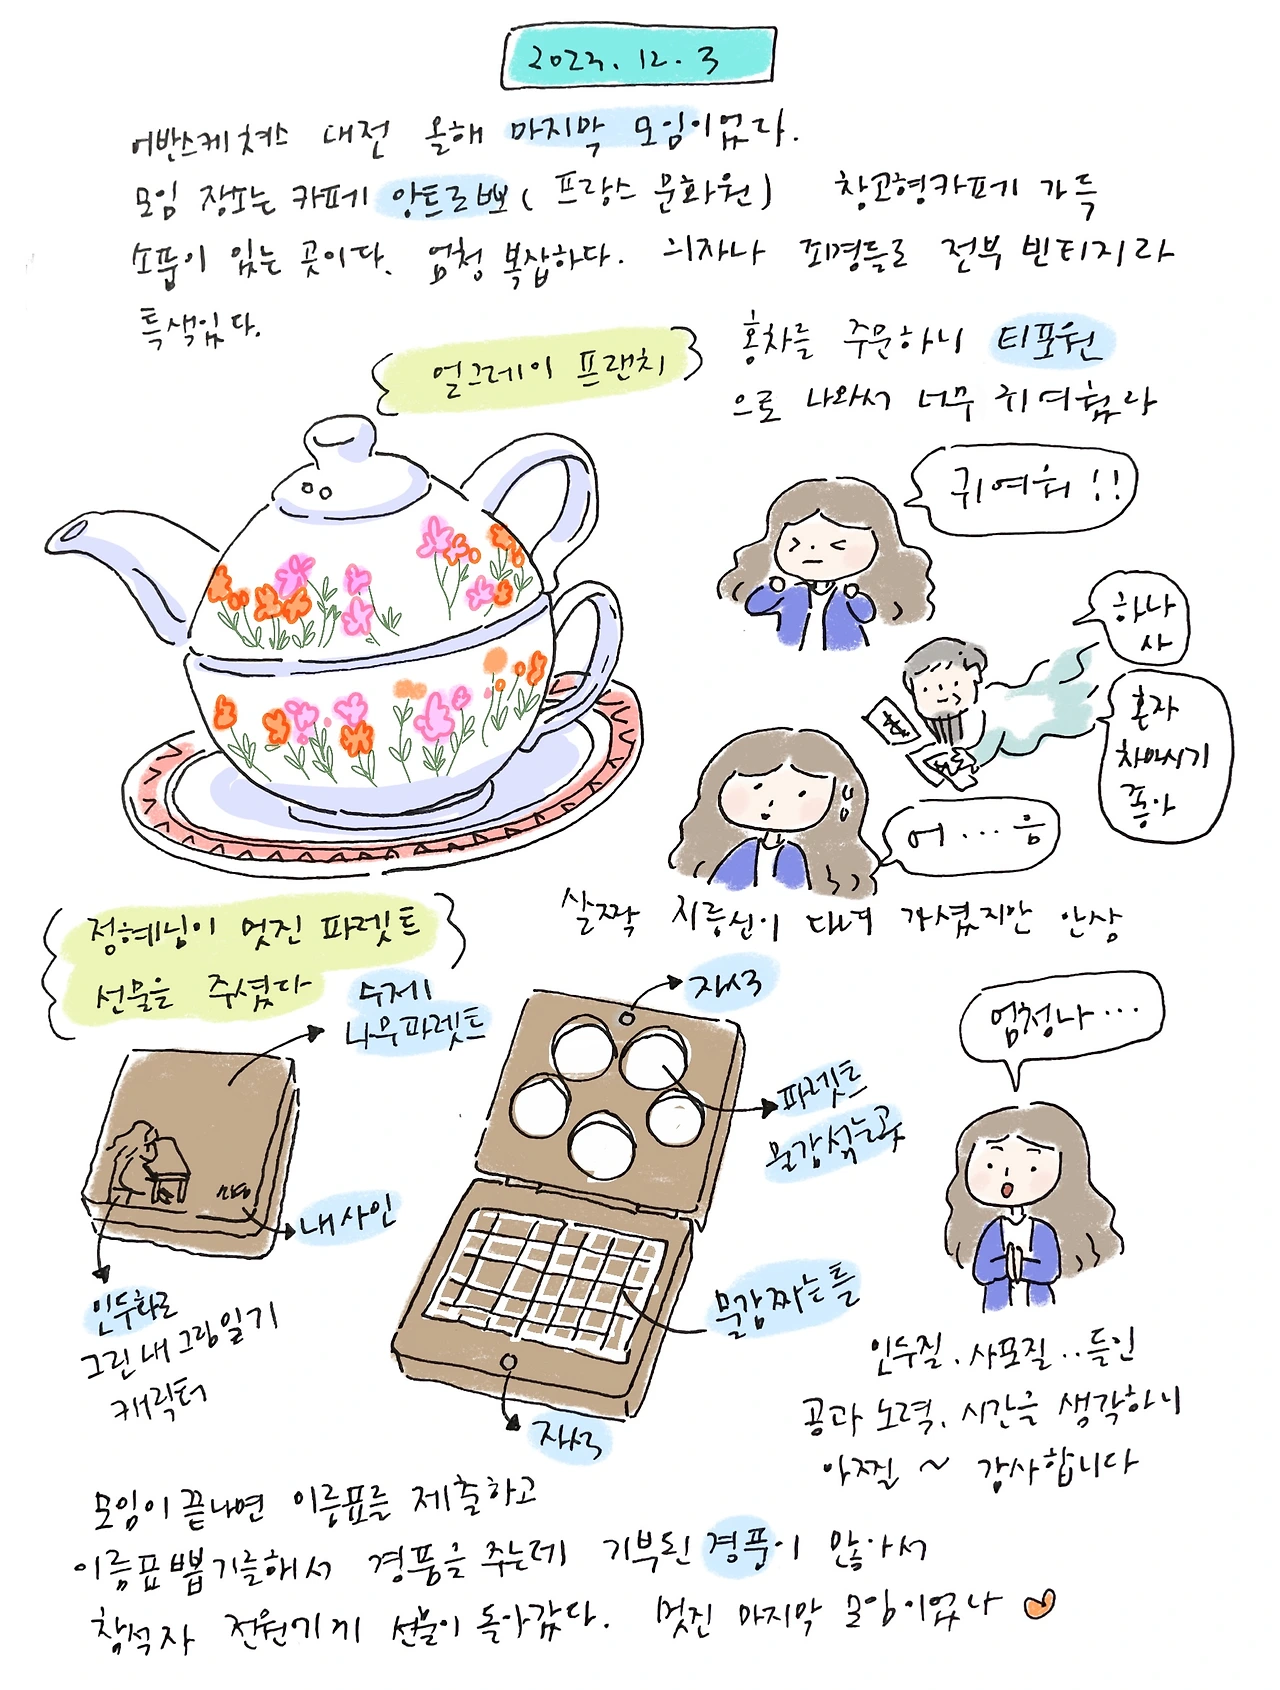 2023. 12. 3
어반스케쳐스 대전 올해 마지막 모임이었다.
모임 장소는 카페 앙트로뽀( 프랑스 문화원) 창고형카페 가득
소품이 있는 곳이다. 엄청 복잡하다. 의자나 찻병들로 전부 빈티지라
특색있다.
얼그레이 프랜치
홍차를 주문하니 티포원
으로 나와서 너무 귀여웠다
귀여워!!
하나
사
혼자
차마시기
좋아
어...음
살짝 지름신이 다녀 가셨지만 안삼
정혜님이 멋진 파렛트
선물을 주셨다
수제
나무파렛트
자석
파렛트
물감섞는곳
내사인
인두화로
그린 내 그림일기
캐릭터
물감짜는틀
자석
엄청나...
인두질. 사포질..들인
공과 노력, 시간을 생각하니
아찔~ 감사합니다
모임이 끝나면 이름표를 제출하고
이름표 뽑기를해서 경품을 주는데 기부된 경품이 많아서
참석자 전원에게 선물이 돌아갔다. 멋진 마지막 모임이었다